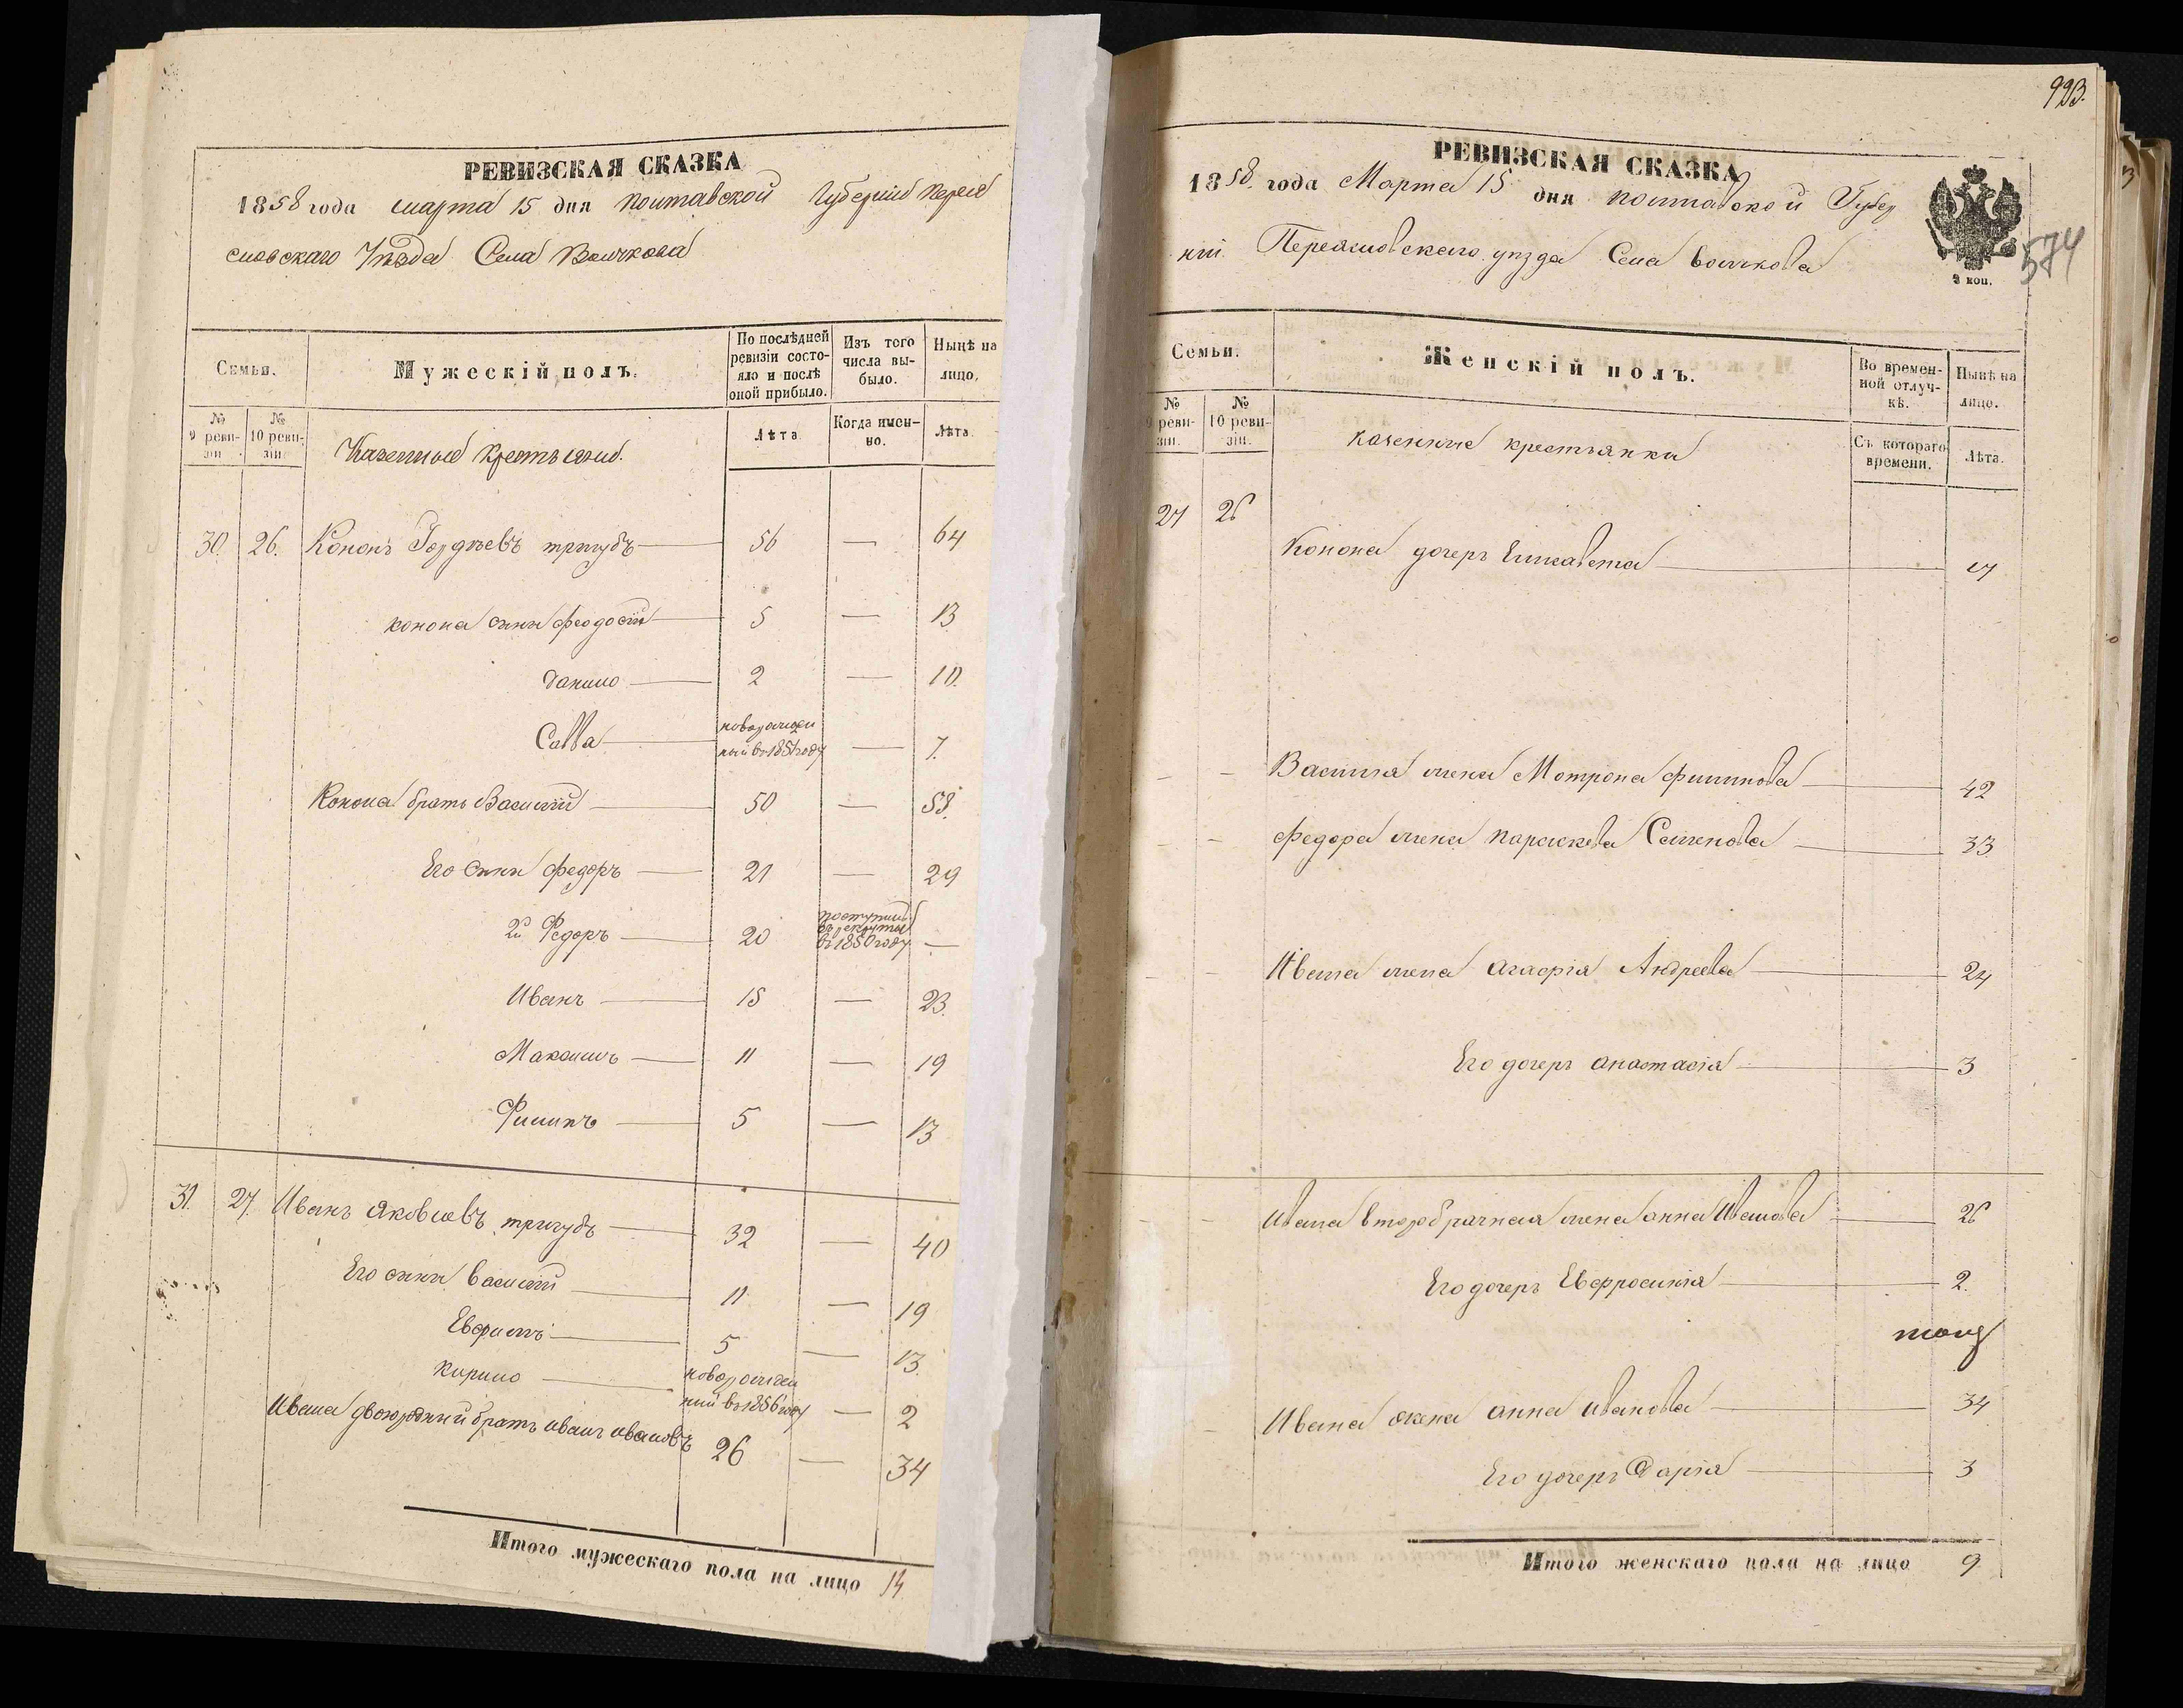 РЕВИЗСКАЯ СКАЗКА
1858 года марта 15 дня Полтавской Губернiи Перея
славскаго Уѣзда Села Вьюнкова
Семьи.
Мужескiй полъ.
По послѣдней ревизiи состояло и послѣ оной прибыло.
Изъ того числа выбыло.
Нынѣ на лицо.
№ 9 ревизiи.
№ 10 ревизiи.
Казенные Крестьяне.
Лѣта
Когда именно.
Лѣта
30. 26. Кононъ Гордѣевъ тригубъ 56 — 64
конона сынъ феодосiй 5 — 13
данило 2 — 10.
Савва новорожденный въ 1851 году — 7.
Конона братъ Василiй 50 — 58.
Его сынъ федоръ 21 — 29
2й Федоръ 20 поступилъ въ рекруты въ 1850 году —
Иванъ 15 — 23.
Максимъ 11 — 19
Филипъ 5 — 13
31. 27. Иванъ Яковлевъ тригубъ 32 — 40
Его сынъ василiй 11 — 19
Евфимъ 5 — 13.
кирило новорожденный въ 1856 году — 2
Ивана двоюродный братъ иванъ ивановъ 26 — 34
Итого мужескаго пола на лицо 14
923.
РЕВИЗСКАЯ СКАЗКА
1858. года Марта 15 дня полтавской Губер
нiи Переяславскаго уѣзда Села
574
3 коп.
Семьи.
Женскiй полъ.
Во временной отлучкѣ.
Нынѣ на лицо.
№ 9 ревизiи.
№ 10 ревизiи.
казенные крестьянки
Съ котораго времени.
Лѣта.
27 26
Конона дочерь Елисавета 17
Василия жена Мотрона филипова 42
федора жена параскева Семенова 33
Ивана жена агафiя Андреева 24
Его дочерь анастасiя 3
Ивана второбрачная жена анна Иванова 26
Его дочерь Евфросинiя 2.
Ивана жена анна иванова 34
Его дочерь дарiя 3
Итого женскаго пола на лицо 9